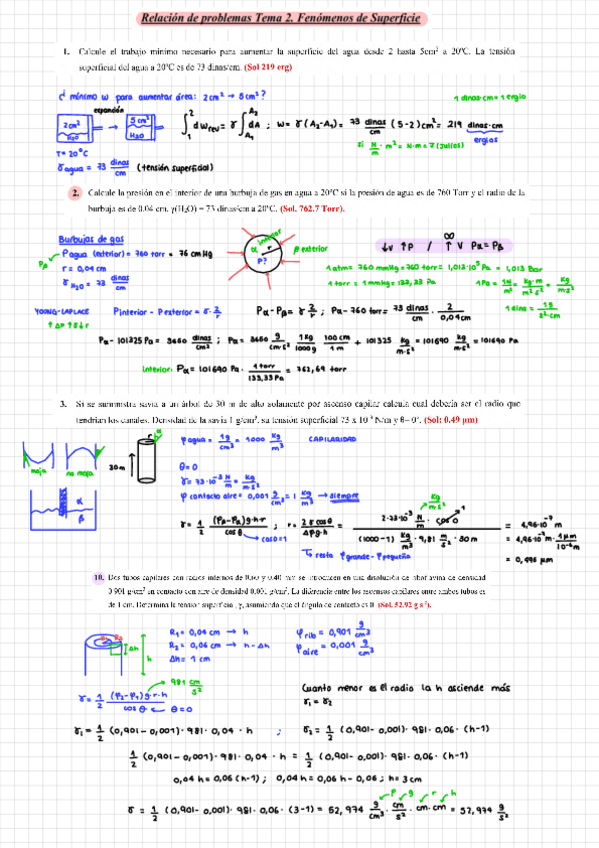 Relación de problemas Tema 2. Fenómenos de Superficie
1. Calcule el trabajo mínimo necesario para aumentar la superficie del agua desde 2 hasta 5cm² a 20ºC. La tensión
superficial del agua a 20ºC es de 73 dinas/cm. (Sol 219 erg)
¿ mínimo w para aumentar área: 2cm² → 5cm² ?
1 dinas·cm = 1 ergio
expansión
2cm² H₂O
5cm² H₂O
∫₁² dW rev = γ ∫ A₁ A₂ dA ; W = γ (A₂-A₁) = 73 dinas/cm (5-2) cm² = 219 dinas·cm
ergios
si N/m · m² = N·m = J (Julios)
T = 20ºC
γ agua = 73 dinas/cm (tensión superficial)
2. Calcule la presión en el interior de una burbuja de gas en agua a 20ºC si la presión de agua es de 760 Torr y el radio de la
burbuja es de 0.04 cm. γ(H₂O) = 73 dinas/cm a 20ºC. (Sol. 762.7 Torr).
Burbujas de gas
α interior
β exterior
r
P?
↓V ↑P / ↑ V Pα = Pβ
∞
Pβ
Pagua (exterior) = 760 torr = 76 cm Hg
r = 0,04 cm
γ H₂O = 73 dinas/cm
1 atm = 760 mmHg = 760 torr = 1,013·10⁵ Pa = 1,013 Bar
1 torr = 1 mmHg = 133,33 Pa
1 Pa = 1N/m² = kg·m/m²s² = kg/m·s²
YOUNG-LAPLACE
Pinterior - Pexterior = γ · 2/r
Pα - Pβ = γ 2/r ; Pα - 760 torr = 73 dinas/cm · 2/0,04cm
1 dina = 1g/s²·cm
↑ΔP ↑γ ↓r
Pα - 101325 Pa = 3650 dinas/cm² ; Pα = 3650 g/cm·s² · 1kg/1000g · 100cm/1m + 101325 kg/m·s² = 101690 kg/m·s² = 101690 Pa
Interior: Pα = 101690 Pa · 1 torr/133,33 Pa = 762,69 torr
3. Si se suministra savia a un árbol de 30 m de alto solamente por ascenso capilar calcula cual debería ser el radio que
tendrían los canales. Densidad de la savia 1 g/cm³, su tensión superficial 73 x 10⁻³ N/m y θ= 0º. (Sol: 0.49 μm)
moja
no moja
30m
r
α
β
ρ agua = 1g/cm³ = 1000 kg/m³
CAPILARIDAD
θ = 0
γ = 73·10⁻³ N/m = kg/s²
ρ contacto aire = 0,001 g/cm³ = 1 kg/m³ → siempre
γ = 1/2 (ρβ-ρα)g·h·r/cosθ ; r = 2γcosθ/Δρg·h = 2·73·10⁻³ N/m · cos 0/(1000-1) kg/m³ · 9,81 m/s² · 30m = 4,96·10⁻⁷ m
→ cos0=1
kg/m·s²
1
= 4,96·10⁻⁷ m · 1μm/10⁻⁶m
→ resta ρgrande - ρpequeña
= 0,496 μm
10. Dos tubos capilares con radios internos de 0.60 y 0.40 mm se introducen en una disolución de riboflavina de densidad
0.901 g/cm³ en contacto con aire de densidad 0.001 g/cm³. La diferencia entre los ascensos capilares entre ambos tubos es
de 1 cm. Determina la tensión superficial, γ, asumiendo que el ángulo de contacto es 0. (Sol. 52.92 g s⁻²).
R₁ = 0,04 cm → h
R₂ = 0,06 cm → h - Δh
Δh = 1 cm
ρ rib = 0,901 g/cm³
ρ aire = 0,001 g/cm³
Δh
h
981 cm/s²
γ = 1/2 (ρ₂-ρ₁)g·r·h/cosθ
θ = 0
Cuanto menor es el radio la h asciende más
γ₁ = γ₂
γ₁ = 1/2 (0,901 - 0,001) · 981 · 0,04 · h ; γ₂ = 1/2 (0,901 - 0,001) · 981 · 0,06 · (h-1)
1/2 (0,901 - 0,001) · 981 · 0,04 · h = 1/2 (0,901 - 0,001) · 981 · 0,06 · (h-1)
0,04 h = 0,06 (h-1) ; 0,04 h = 0,06 h - 0,06 ; h = 3 cm
ρ g r h
γ = 1/2 (0,901 - 0,001) · 981 · 0,06 · (3-1) = 52,974 g/cm³ · cm/s² · cm·cm = 52,974 g/s²